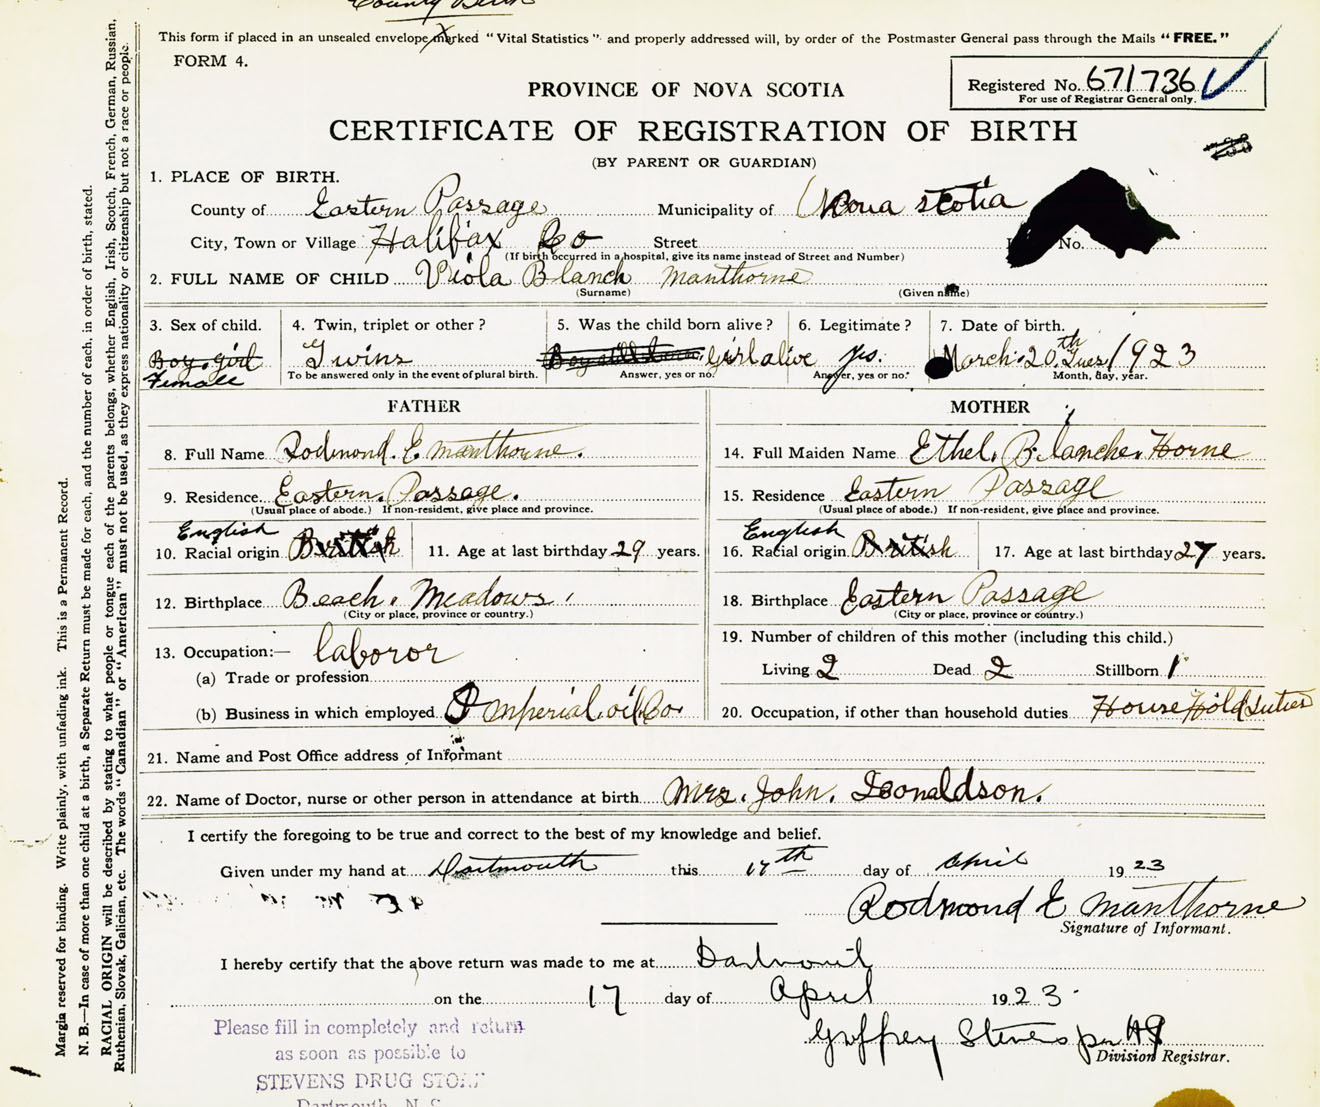 This form if placed in an unsealed envelope marked "Vital Statistics" and properly addressed will, by order of the Postmaster General pass through the Mails "FREE."
FORM 4.
Registered No. 671736
For use of Registrar General only.
PROVINCE OF NOVA SCOTIA
CERTIFICATE OF REGISTRATION OF BIRTH
(BY PARENT OR GUARDIAN)
1. PLACE OF BIRTH.
County of Eastern Passage Municipality of Nova scotia
City, Town or Village Halifax Co Street No.
(If birth occurred in a hospital, give its name instead of Street and Number)
2. FULL NAME OF CHILD Viola Blanch Manthorne
(Surname) (Given name)
3. Sex of child. 4. Twin, triplet or other? 5. Was the child born alive? 6. Legitimate? 7. Date of birth.
Boy. girl Twins Girl alive yes. March. 20th Tues 1923
Female To be answered only in the event of plural birth. Answer, yes or no. Answer, yes or no. Month, day, year.
FATHER MOTHER
8. Full Name Rodmond. E. Manthorne. 14. Full Maiden Name Ethel. Blanche. Horne
9. Residence Eastern. Passage. 15. Residence Eastern Passage
(Usual place of abode.) If non-resident, give place and province. (Usual place of abode.) If non-resident, give place and province.
English English
10. Racial origin British 11. Age at last birthday 29 years. 16. Racial origin British 17. Age at last birthday 27 years.
12. Birthplace Beach. Meadows. 18. Birthplace Eastern Passage
(City or place, province or country.) (City or place, province or country.)
13. Occupation:— laboror 19. Number of children of this mother (including this child.)
(a) Trade or profession Living 2 Dead 2 Stillborn 1
(b) Business in which employed Imperial. oil. Co. 20. Occupation, if other than household duties House Hold duties
21. Name and Post Office address of Informant
22. Name of Doctor, nurse or other person in attendance at birth Mrs. John. Donaldson.
I certify the foregoing to be true and correct to the best of my knowledge and belief.
Given under my hand at Dartmouth this 17th day of April 1923
Rodmond E Manthorne
Signature of Informant.
I hereby certify that the above return was made to me at
on the 17 day of April 1923.
Goffrey Stevens per
Division Registrar.
Please fill in completely and return
as soon as possible to
STEVENS DRUG STORE
Dartmouth, N.S.
Margin reserved for binding. Write plainly, with unfading ink. This is a Permanent Record.
N. B.—In case of more than one child at a birth, a Separate Return must be made for each, and the number of each, in order of birth, stated.
RACIAL ORIGIN will be described by stating to what people or tongue each of the parents belongs, whether English, Irish, Scotch, French, German, Russian,
Ruthenian, Slovak, Galician, etc. The words "Canadian" or "American" must not be used, as they express nationality or citizenship but not a race or people.